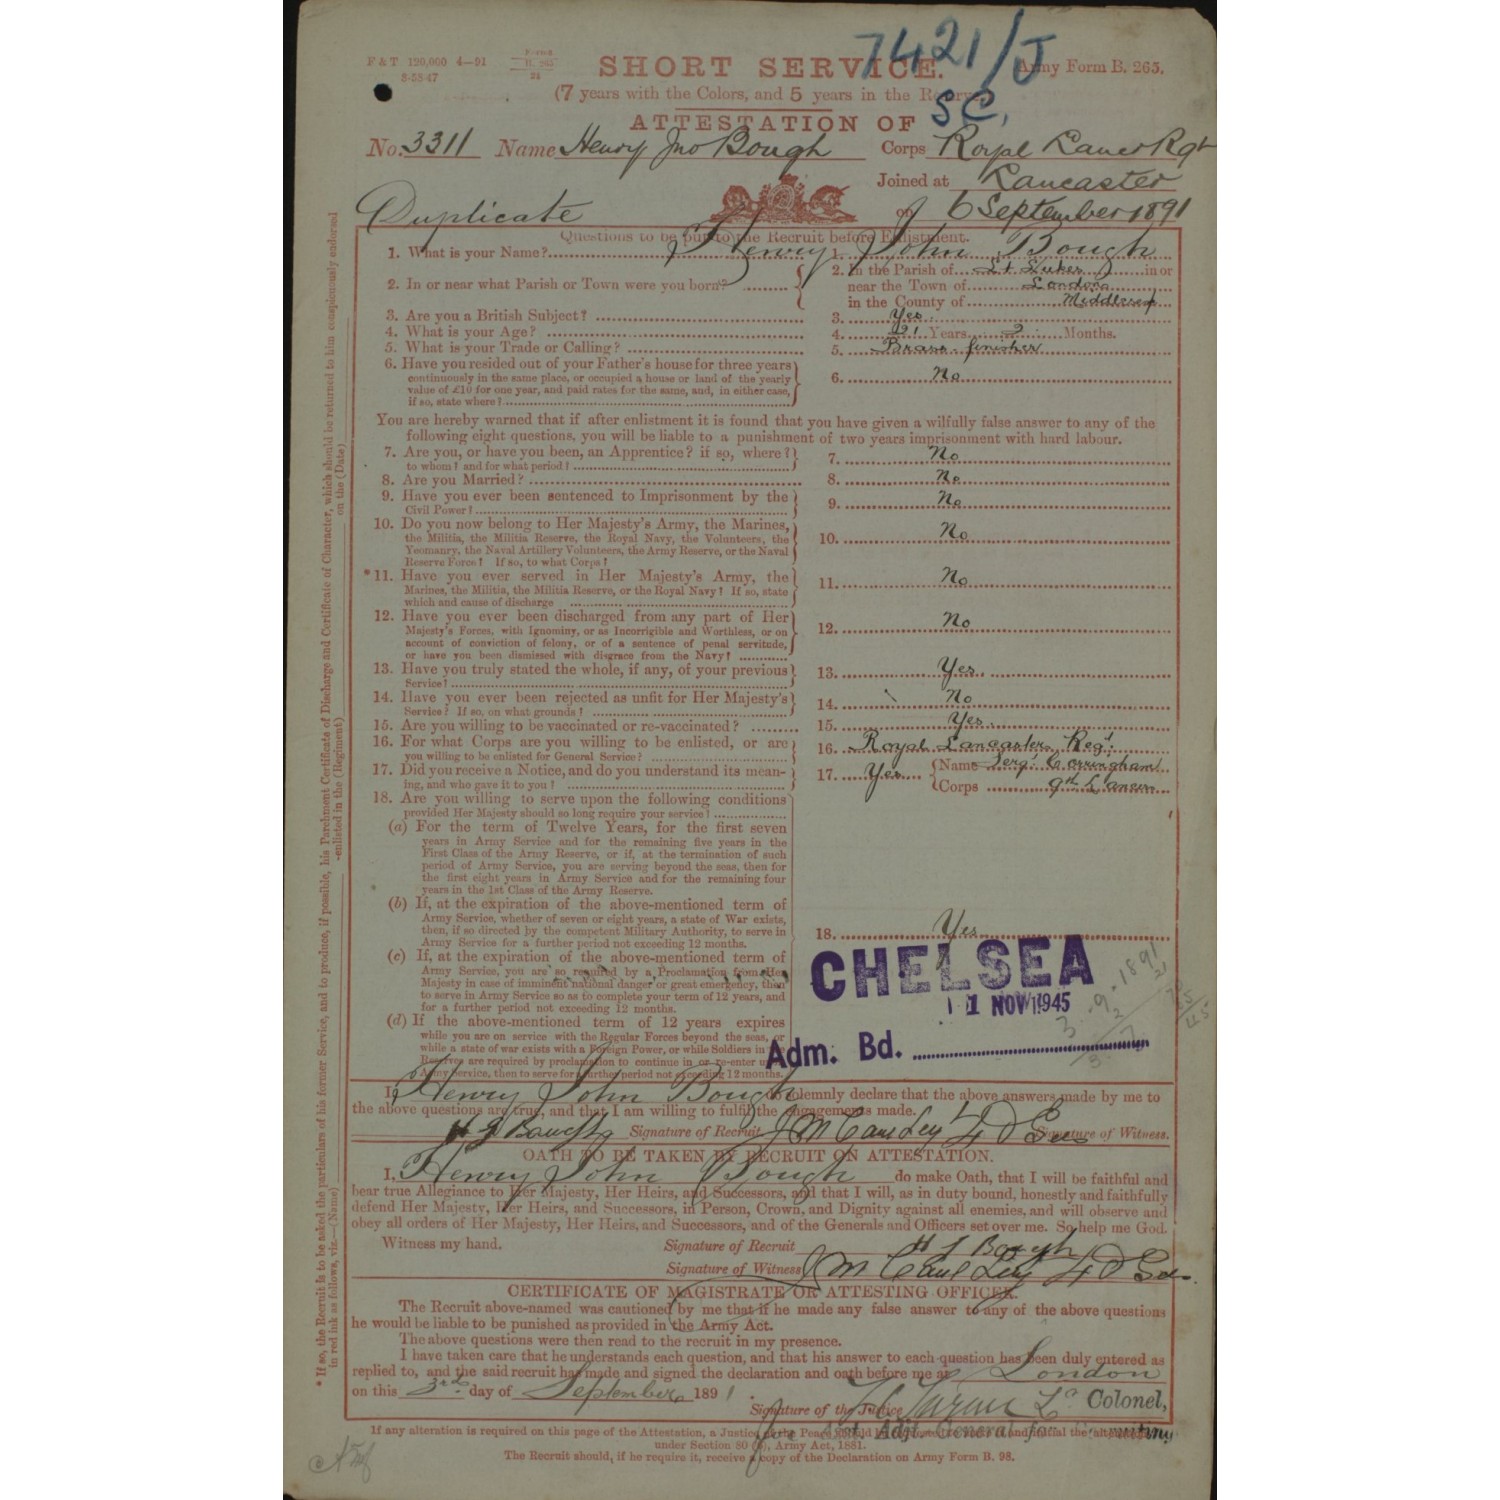 7421/J
S.C.
F & T 120,000 4—91
3-58 47
Forms
B. 265
24
SHORT SERVICE.
Army Form B. 265.
(7 years with the Colors, and 5 years in the Reserve
ATTESTATION OF
No. 3311 Name Henry Jno Bough Corps Royal Lancr Rgt
Joined at Lancaster
Duplicate on 6 September 1891
Questions to be put to the Recruit before Enlistment.
1. What is your Name? 1. Henry John Bough
2. In or near what Parish or Town were you born? 2. In the Parish of St Lukes in or
near the Town of London
in the County of Middlesex
3. Are you a British Subject? 3. Yes.
4. What is your Age? 4. 21 Years 2 Months.
5. What is your Trade or Calling? 5. Brass finisher
6. Have you resided out of your Father's house for three years 6. No
continuously in the same place, or occupied a house or land of the yearly
value of £10 for one year, and paid rates for the same, and, in either case,
if so, state where?
You are hereby warned that if after enlistment it is found that you have given a wilfully false answer to any of the
following eight questions, you will be liable to a punishment of two years imprisonment with hard labour.
7. Are you, or have you been, an Apprentice? if so, where? 7. No
to whom? and for what period?
8. Are you Married? 8. No
9. Have you ever been sentenced to Imprisonment by the 9. No
Civil Power?
10. Do you now belong to Her Majesty's Army, the Marines, 10. No
the Militia, the Militia Reserve, the Royal Navy, the Volunteers, the
Yeomanry, the Naval Artillery Volunteers, the Army Reserve, or the Naval
Reserve Force? If so, to what Corps?
*11. Have you ever served in Her Majesty's Army, the 11. No
Marines, the Militia, the Militia Reserve, or the Royal Navy? If so, state
which and cause of discharge
12. Have you ever been discharged from any part of Her 12. No
Majesty's Forces, with Ignominy, or as Incorrigible and Worthless, or on
account of conviction of felony, or of a sentence of penal servitude,
or have you been dismissed with disgrace from the Navy?
13. Have you truly stated the whole, if any, of your previous 13. Yes.
Service?
14. Have you ever been rejected as unfit for Her Majesty's 14. No
Service? If so, on what grounds?
15. Are you willing to be vaccinated or re-vaccinated? 15. Yes.
16. For what Corps are you willing to be enlisted, or are 16. Royal Lancaster Regt.
you willing to be enlisted for General Service?
17. Did you receive a Notice, and do you understand its mean- 17. Yes Name Sergt Carringham
ing, and who gave it to you? Corps 9th Lancers
18. Are you willing to serve upon the following conditions
provided Her Majesty should so long require your service?
(a) For the term of Twelve Years, for the first seven
years in Army Service and for the remaining five years in the
First Class of the Army Reserve, or if, at the termination of such
period of Army Service, you are serving beyond the seas, then for
the first eight years in Army Service and for the remaining four
years in the 1st Class of the Army Reserve.
(b) If, at the expiration of the above-mentioned term of
Army Service, whether of seven or eight years, a state of War exists,
then, if so directed by the competent Military Authority, to serve in 18. Yes
Army Service for a further period not exceeding 12 months.
(c) If, at the expiration of the above-mentioned term of
Army Service, you are so required by a Proclamation from Her
Majesty in case of imminent national danger or great emergency, then
to serve in Army Service so as to complete your term of 12 years, and
for a further period not exceeding 12 months.
(d) If the above-mentioned term of 12 years expires
while you are on service with the Regular Forces beyond the seas, or
while a state of war exists with a Foreign Power, or while Soldiers in the
Reserves are required by proclamation to continue in or re-enter upon
Army Service, then to serve for a further period not exceeding 12 months.
CHELSEA
1 NOV 1945
Adm. Bd.
3.9.1891
I, Henry John Bough solemnly declare that the above answers made by me to
the above questions are true, and that I am willing to fulfil the engagements made.
H J Bough Signature of Recruit Signature of Witness.
OATH TO BE TAKEN BY RECRUIT ON ATTESTATION.
I, Henry John Bough do make Oath, that I will be faithful and
bear true Allegiance to Her Majesty, Her Heirs, and Successors, and that I will, as in duty bound, honestly and faithfully
defend Her Majesty, Her Heirs, and Successors, in Person, Crown, and Dignity against all enemies, and will observe and
obey all orders of Her Majesty, Her Heirs, and Successors, and of the Generals and Officers set over me. So help me God.
Witness my hand. Signature of Recruit H J Bough
Signature of Witness
CERTIFICATE OF MAGISTRATE OR ATTESTING OFFICER.
The Recruit above-named was cautioned by me that if he made any false answer to any of the above questions
he would be liable to be punished as provided in the Army Act.
The above questions were then read to the recruit in my presence.
I have taken care that he understands each question, and that his answer to each question has been duly entered as
replied to, and the said recruit has made and signed the declaration and oath before me at London
on this 3rd day of September 1891.
Signature of the Justice Colonel,
Asst. Adjt. General for Recruiting
If any alteration is required on this page of the Attestation, a Justice of the Peace should be requested to make it and initial the alteration
under Section 80 (6), Army Act, 1881.
The Recruit should, if he require it, receive a copy of the Declaration on Army Form B. 98.
* If so, the Recruit is to be asked the particulars of his former Service, and to produce, if possible, his Parchment Certificate of Discharge and Certificate of Character, which should be returned to him conspicuously endorsed
in red ink as follows, viz.—(Name) enlisted in the (Regiment) on the (Date)